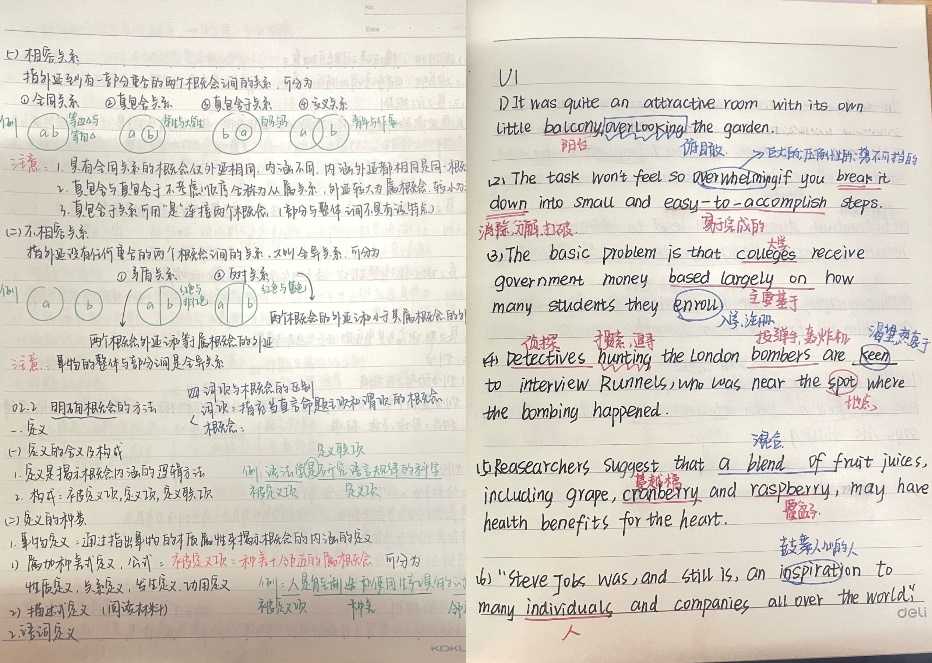 No.
Date
(一) 相容关系
指外延至少有一部分重合的两个概念之间的关系,可分为
①全同关系 ②真包含关系 ③真包含于关系 ④交叉关系
例 a b 等边△与等角△ a b 学生与大学生 b a 白马与马 a b 青年与作家
注意:1. 具有全同关系的概念仅外延相同,内涵不同,内涵外延都相同是同一概
2. 真包含与真包含于不考虑顺序合称为从属关系,外延较大为属概念,较小为
3. 真包含于关系可用“是”连接两个概念(部分与整体之间不具有该特点)
(二) 不相容关系
指外延没有任何重合的两个概念之间的关系,又叫全异关系,可分为
①矛盾关系 ②反对关系
例 a b a b 红色与非红色 a b 红色与蓝色
两个概念外延之和等于属概念的外延
两个概念的外延之和小于其属概念的外
注意:事物的整体与部分间是全异关系
四.词项与概念的区别
02.2 明确概念的方法
词项:指充当直言命题主项和谓项的概念
概念:
一.定义
(一) 定义的含义及构成
定义联项
1. 定义是揭示概念内涵的逻辑方法 例:语法学是研究语言规律的科学
2. 构成:被定义项,定义项,定义联项 被定义项 定义项
(二) 定义的种类
1. 事物定义:通过指出事物的本质属性来揭示概念的内涵的定义
1) 属加种差式定义,公式:被定义项=种差+邻近的属概念 可分为
性质定义,关系定义,发生定义,功用定义 例:人是能制造和使用生产工具的
2) 描述式定义(阅读材料) 被定义项 种差
2. 语词定义
KOKU
U1
(1) It was quite an attractive room with its own
little balcony, overlooking the garden.
阳台 俯瞰
巨大的;压倒性的;势不可挡的
(2) The task won't feel so overwhelming if you break it
down into small and easy-to-accomplish steps.
消除,分解,打破 易于完成的
大学
(3) The basic problem is that colleges receive
government money based largely on how
主要基于
many students they enroll
入学,注册
侦探 搜索,追寻 投弹手,轰炸机 渴望,热衷于
(4) Detectives hunting the London bombers are keen
to interview Runnels, who was near the spot where
地点
the bombing happened.
混合
(5) Reasearchers suggest that a blend of fruit juices,
蔓越橘
including grape, cranberry and raspberry, may have
覆盆子
health benefits for the heart.
鼓舞人心的人
(6) "Steve Jobs was, and still is, an inspiration to
many individuals and companies all over the world."
人
deli